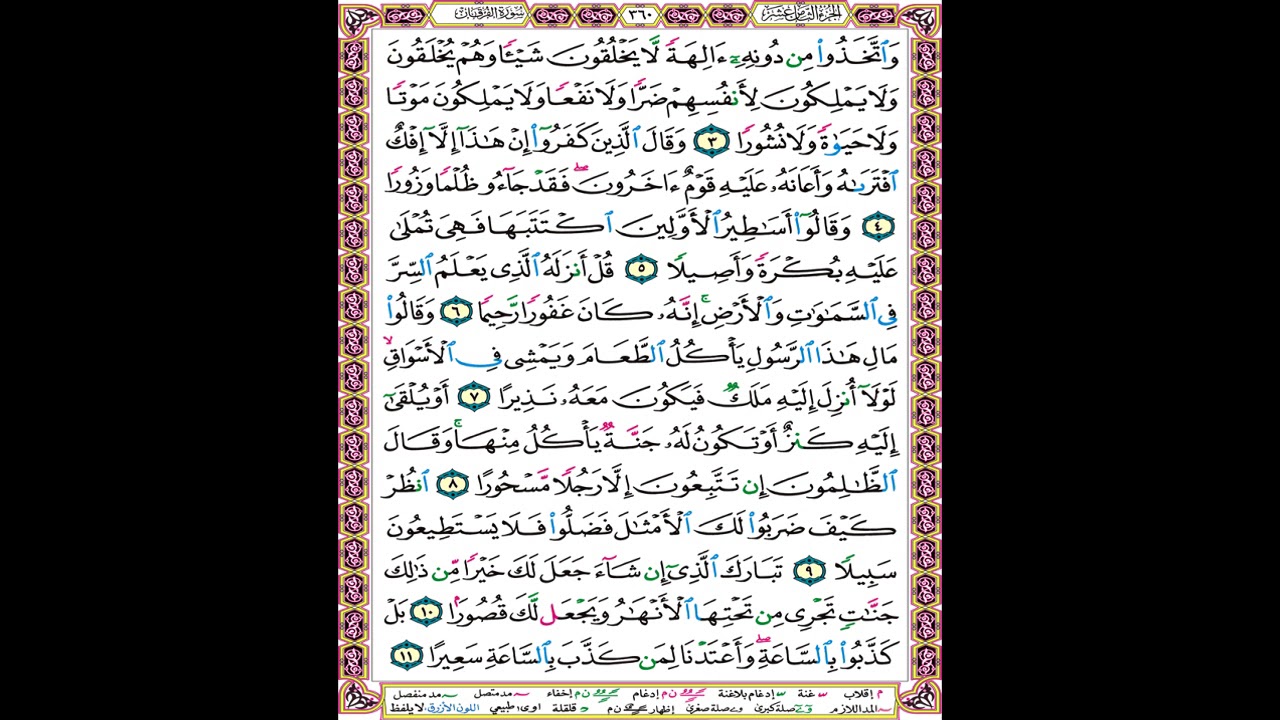 سورة الفرقان ٣٦٠ الجزء الثامن عشر
وَٱتَّخَذُوا۟ مِن دُونِهِۦٓ ءَالِهَةً لَّا يَخْلُقُونَ شَيْـًٔا وَهُمْ يُخْلَقُونَ
وَلَا يَمْلِكُونَ لِأَنفُسِهِمْ ضَرًّا وَلَا نَفْعًا وَلَا يَمْلِكُونَ مَوْتًا
وَلَا حَيَوٰةً وَلَا نُشُورًا ٣ وَقَالَ ٱلَّذِينَ كَفَرُوٓا۟ إِنْ هَـٰذَآ إِلَّآ إِفْكٌ
ٱفْتَرَىٰهُ وَأَعَانَهُۥ عَلَيْهِ قَوْمٌ ءَاخَرُونَ ۖ فَقَدْ جَآءُو ظُلْمًا وَزُورًا
٤ وَقَالُوٓا۟ أَسَـٰطِيرُ ٱلْأَوَّلِينَ ٱكْتَتَبَهَا فَهِىَ تُمْلَىٰ
عَلَيْهِ بُكْرَةً وَأَصِيلًا ٥ قُلْ أَنزَلَهُ ٱلَّذِى يَعْلَمُ ٱلسِّرَّ
فِى ٱلسَّمَـٰوَٰتِ وَٱلْأَرْضِ ۚ إِنَّهُۥ كَانَ غَفُورًا رَّحِيمًا ٦ وَقَالُوا۟
مَالِ هَـٰذَا ٱلرَّسُولِ يَأْكُلُ ٱلطَّعَامَ وَيَمْشِى فِى ٱلْأَسْوَاقِ ۙ
لَوْلَآ أُنزِلَ إِلَيْهِ مَلَكٌ فَيَكُونَ مَعَهُۥ نَذِيرًا ٧ أَوْ يُلْقَىٰٓ
إِلَيْهِ كَنزٌ أَوْ تَكُونُ لَهُۥ جَنَّةٌ يَأْكُلُ مِنْهَا ۚ وَقَالَ
ٱلظَّـٰلِمُونَ إِن تَتَّبِعُونَ إِلَّا رَجُلًا مَّسْحُورًا ٨ ٱنظُرْ
كَيْفَ ضَرَبُوا۟ لَكَ ٱلْأَمْثَـٰلَ فَضَلُّوا۟ فَلَا يَسْتَطِيعُونَ
سَبِيلًا ٩ تَبَارَكَ ٱلَّذِىٓ إِن شَآءَ جَعَلَ لَكَ خَيْرًا مِّن ذَٰلِكَ
جَنَّـٰتٍ تَجْرِى مِن تَحْتِهَا ٱلْأَنْهَـٰرُ وَيَجْعَل لَّكَ قُصُورًۢا ١٠ بَلْ
كَذَّبُوا۟ بِٱلسَّاعَةِ ۖ وَأَعْتَدْنَا لِمَن كَذَّبَ بِٱلسَّاعَةِ سَعِيرًا ١١
م إقلاب غنة إدغام بلاغنة ن م إدغام ن م إخفاء مد متصل مد منفصل
المد اللازم صلة كبرى صلة صغرى إظهار ن م قلقلة اوى طبيعي اللون الأزرق لا يلفظ